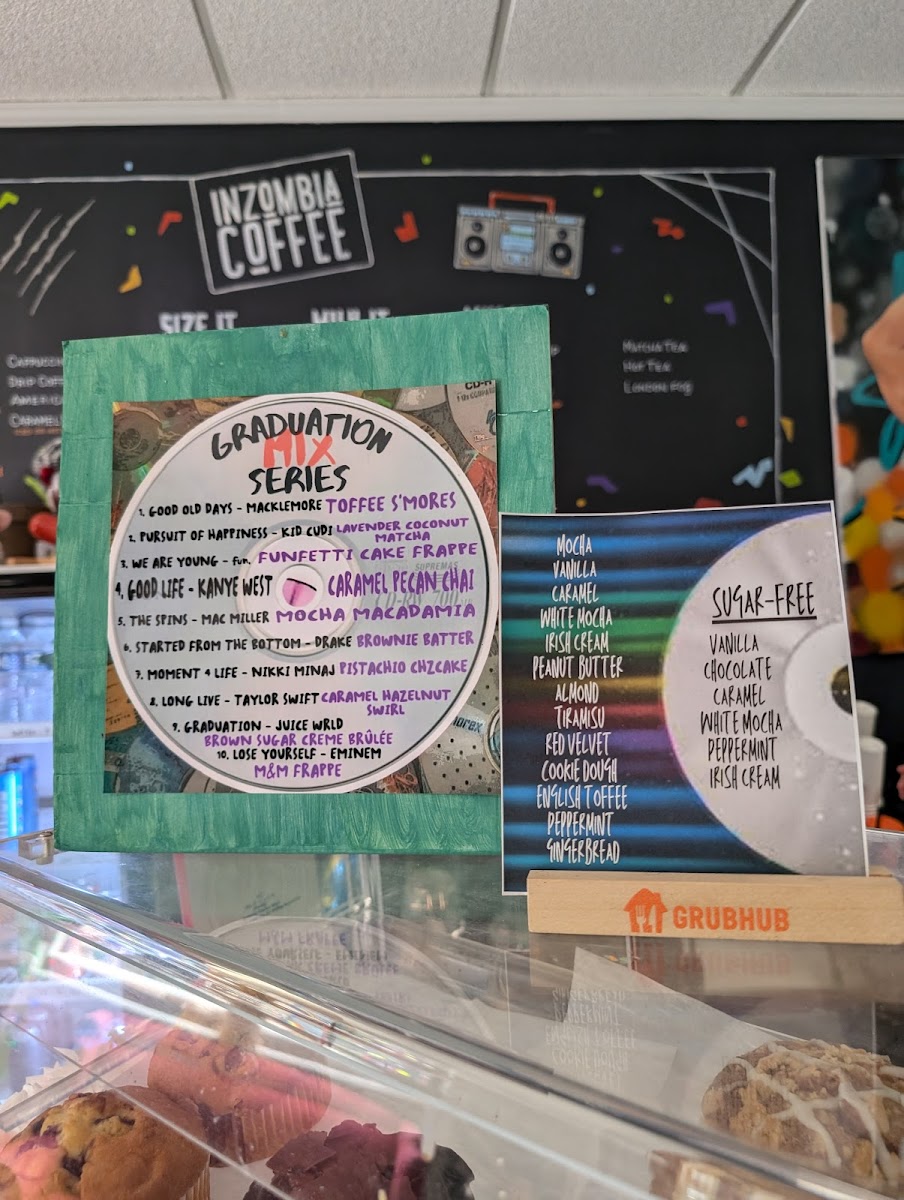 INZOMBIA
COFFEE
SIZE IT
MILK IT
MATCHA TEA
HOT TEA
LONDON FOG
CD-R
GRADUATION
MIX
SERIES
1. GOOD OLD DAYS - MACKLEMORE TOFFEE S'MORES
2. PURSUIT OF HAPPINESS - KID CUDI LAVENDER COCONUT
MATCHA
3. WE ARE YOUNG - fun. FUNFETTI CAKE FRAPPE
4. GOOD LIFE - KANYE WEST CARAMEL PECAN CHAI
5. THE SPINS - MAC MILLER MOCHA MACADAMIA
6. STARTED FROM THE BOTTOM - DRAKE BROWNIE BATTER
7. MOMENT 4 LIFE - NIKKI MINAJ PISTACHIO CHZCAKE
8. LONG LIVE - TAYLOR SWIFT CARAMEL HAZELNUT
SWIRL
9. GRADUATION - JUICE WRLD
BROWN SUGAR CREME BRÛLÉE
10. LOSE YOURSELF - EMINEM
M&M FRAPPE
MOCHA
VANILLA
CARAMEL
WHITE MOCHA
IRISH CREAM
PEANUT BUTTER
ALMOND
TIRAMISU
RED VELVET
COOKIE DOUGH
ENGLISH TOFFEE
PEPPERMINT
GINGERBREAD
SUGAR-FREE
VANILLA
CHOCOLATE
CARAMEL
WHITE MOCHA
PEPPERMINT
IRISH CREAM
GRUBHUB